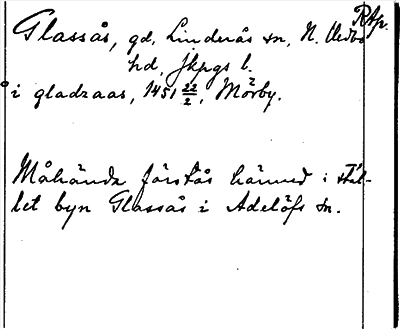 Rtp.
Glassås, gd, Linderås sn, N. Vedbo
hd, Jkpgs l.
å i gladzaas, 1451 22/2, Mörby.
Måhända förstås härmed i stäl-
let byn Glassås i Adelöfs sn.